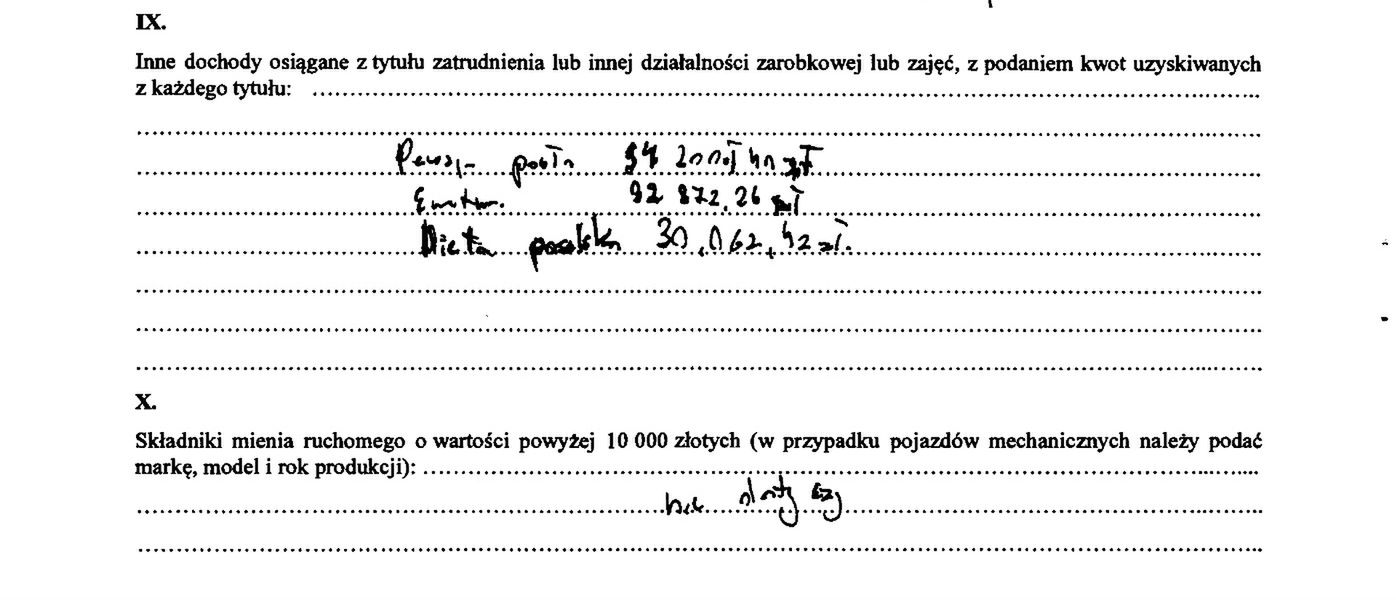 IX.
Inne dochody osiągane z tytułu zatrudnienia lub innej działalności zarobkowej lub zajęć, z podaniem kwot uzyskiwanych
z każdego tytułu:
92 872,26 zł
Dieta poselska 30.062,42 zł.
X.
Składniki mienia ruchomego o wartości powyżej 10 000 złotych (w przypadku pojazdów mechanicznych należy podać
markę, model i rok produkcji):
nie dotyczy